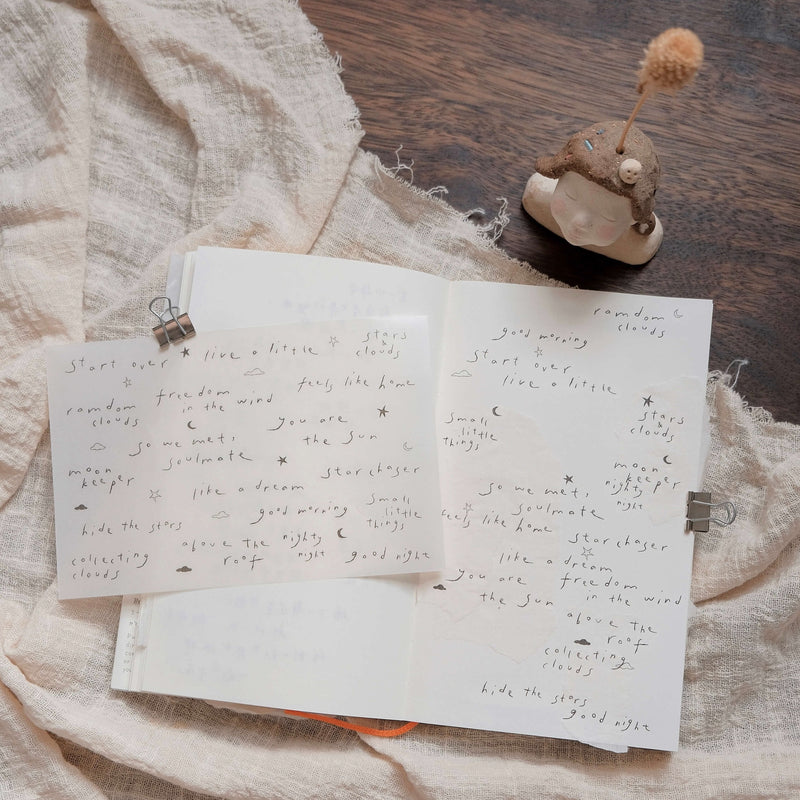 start over
live a little
stars
&
clouds
feels like home
ramdom
clouds
freedom
in the wind
you are
the sun
so we met,
soulmate
moon
keeper
star chaser
like a dream
good morning
small
little
things
hide the stars
above the
roof
nighty
night
good night
collecting
clouds
ramdom
clouds
good morning
start over
live a little
stars
&
clouds
small
little
things
moon
keeper
nighty
night
so we met,
soulmate
feels like home
star chaser
like a dream
you are
the sun
freedom
in the wind
above the
roof
collecting
clouds
hide the stars
good night